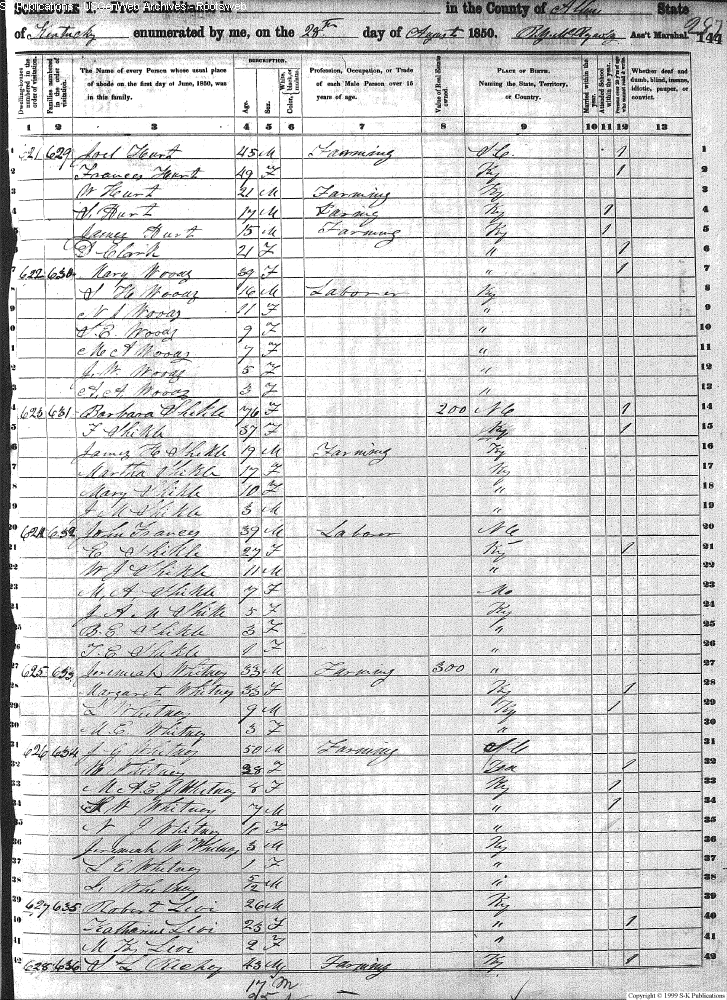 S-K Publications - USGenWeb Archives - Rootsweb
in the County of Allen State
of Kentucky enumerated by me, on the 28th day of August 1850. Ass't Marshal. 144
DESCRIPTION.
Dwelling-houses numbered in the order of visitation. Families numbered in the order of visitation. The Name of every Person whose usual place of abode on the first day of June, 1850, was in this family. Age. Sex. Color, Profession, Occupation, or Trade of each Male Person over 15 years of age. Value of Real Estate owned. PLACE OF BIRTH. Naming the State, Territory, or Country. Married within the year. Attended School within the year. Whether deaf and dumb, blind, insane, idiotic, pauper, or convict.
1 2 3 4 5 6 7 8 9 10 11 12 13
621 629 Joel Hurt 45 M Farming S C. 1 1
2 Frances Hurt 49 F Ky 1 2
3 W Hurt 21 M Farming Ky 3
4 S. Hurt 17 M Farming Ky 1 4
5 James Hurt 15 M Farming Ky 1 5
6 Clark 21 F " 1 6
7 622 630 Mary Woods 39 F " 1 7
8 S H Woods 16 M Laborer Ky 8
9 N J Woods 11 F " 9
10 S. E. Woods 9 F " 10
11 M A Woods 7 F " 11
12 J. W. Woods 5 F " 12
13 A. A Woods 3 F " 13
14 623 631 Barbara Shikle 76 F 200 N C 1 14
15 F Shikle 37 F Ky 1 15
16 James H Shikle 19 M Farming Ky 16
17 Martha Shikle 17 F Ky 17
18 Mary Shikle 10 F " 18
19 M Shikle 3 M " 19
20 624 632 John Francy 39 M Labour N C 20
21 E Shikle 27 F Ky 1 21
22 W J Shikle 11 M " 22
23 M, A Shikle 7 F Mo 23
24 J A M Shikle 5 F Ky 24
25 B. E Shikle 3 F " 25
26 T. E Shikle 1 F " 26
27 625 633 Jeremiah Whitney 33 M Farming 300 " 27
28 Margaret Whitney 33 F Ky 1 28
29 L Whitney 9 M Ky 1 29
30 M. E Whitney 3 F " 30
31 626 634 J G Whitney 50 M Farming N C 31
32 Whitney 38 F Ten 1 32
33 M A E J Whitney 8 F Ky 1 33
34 N Whitney 7 M " 1 34
35 N J Whitney F " 35
36 Jeremiah W Whitney 3 M Ky 36
37 L E Whitney 1 F " 37
38 Whitney M " 38
39 627 635 Robert Levi 26 M Ky 39
40 Katharine Levi 23 F " 1 40
41 M. E. Levi 2 F " 41
42 628 636 S L Richey 43 M Farming Ky 1 42
17 M
25
Copyright © 1999 S-K Publications